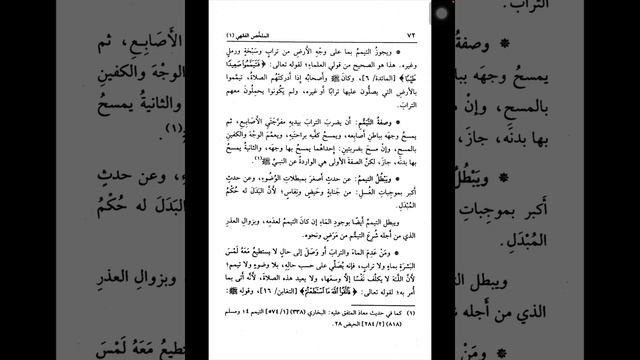 ٧٢
الملخص الفقهي (١)
● ويجوزُ التيممُ بما على وجهِ الأرضِ من ترابٍ وسَبْخةٍ ورملٍ
وغيره. هذا هو الصحيح من قولي العلماءِ؛ لقوله تعالى: ﴿فَتَيَمَّمُوا صَعِيدًا
طَيِّبًا﴾ [المائدة/ ٦]، وكانَ ﷺ وأصحابُه إذا أدركتْهُم الصلاةُ، تيمَّموا
بالأرضِ التي يصلُّون عليها ترابًا أو غيره، ولم يكُونوا يحمِلُون معهم
الترابَ.
● وصفةُ التَّيَمُّمِ: أن يضربَ الترابَ بيديهِ مفرَّجَتَي الأَصَابِعِ، ثم
يمسحُ وجهَه بباطنِ أصابعِه، ويمسحُ كفَّيه براحتَيهِ، ويعمِّمَ الوجْهَ والكفينِ
بالمسحِ، وإنْ مسحَ بضربتينِ: إحداهُما يمسحُ بها وجهَه، والثانيةُ يمسحُ
بها بدنَه، جازَ، لكنَّ الصفةَ الأولى هي الواردةُ عن النبيِّ ﷺ(١).
● ويَبْطُلُ التيممُ: عن حدثٍ أصغرَ بمبطلاتِ الوُضُوءِ، وعن حدثٍ
أكبر بموجِباتِ الغُسلِ: من جَنَابةٍ وحَيضٍ ونِفاسٍ؛ لأنَّ البَدَلَ له حُكْمُ
المُبْدَلِ.
ويبطل التيممُ أيضًا بوجودِ المَاءِ إن كانَ التيممُ لعدمِه، وبزوالِ العذرِ
الذي من أجله شُرعَ التيمُّم من مَرَضٍ ونحوه.
● ومَنْ عَدِمَ الماءَ والترابَ أو وَصَلَ إلى حالٍ لا يستطيعُ مَعَهُ لَمْسَ
البَشَرَةِ بماءٍ ولا ترابٍ، فإنه يُصَلِّي على حسبِ حالِهِ، بلا وضوءٍ ولا تيممٍ؛
لأنَّ اللَّهَ لا يكلِّف نَفْسًا إلَّا وسعَها، ولا يعيد هذه الصلاةَ، لأنَّه أتى بما
أُمر به؛ لقوله تعالى: ﴿فَاتَّقُوا اللَّهَ مَا اسْتَطَعْتُمْ﴾ [التغابن/ ١٦]، وقولِهِ ﷺ:
(١) كما في حديث معاذ المتفق عليه: البخاري (٣٣٨) [٥٧٤/١] التيمم ١٤ ومسلم
(٨١٨) [٢٨٤/٢] الحيض ٢٨.